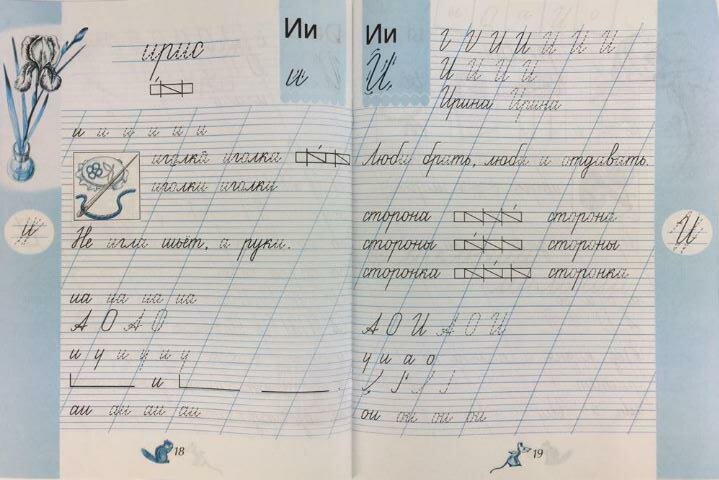 Ии
ирис
и
и и и и и и
иголка иголка
иголки иголки
и
Не игла шьёт, а руки.
иа иа иа иа
А О А О
и у и у и у
и .
аи аи аи аи
18
Ии
И
И И И И
Ирина Ирина
Люби брать, люби и отдавать.
сторона сторона
И
стороны стороны
сторонка сторонка
А О И А О И
у и а о
ои ои ои ои
19